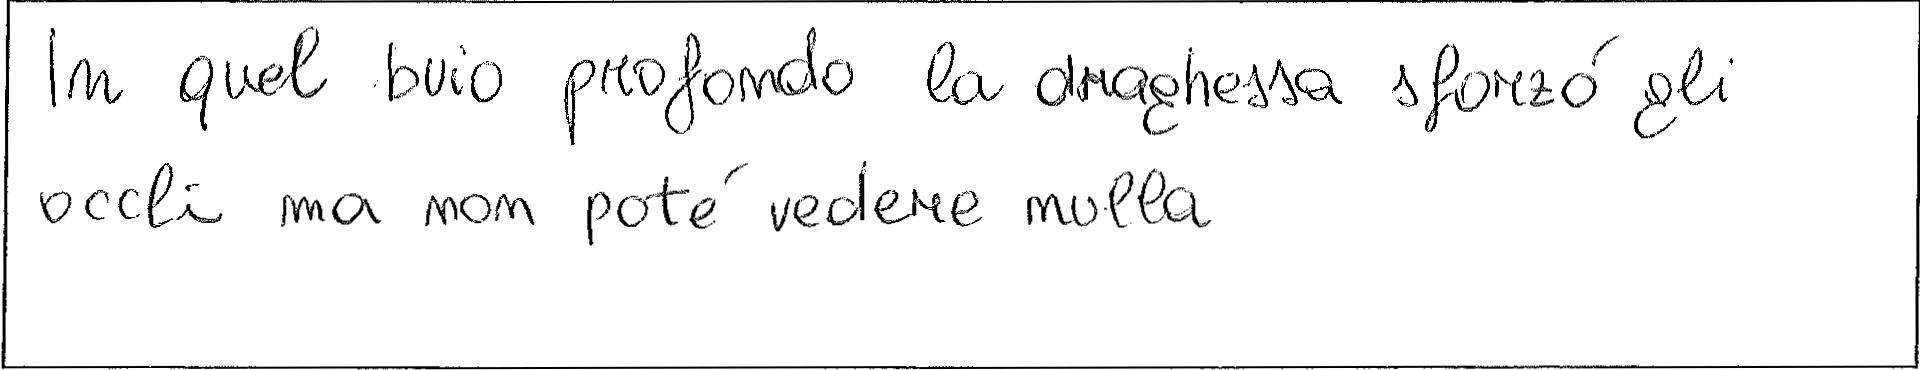 In quel buio profondo la draghessa sforzó gli
occli ma non poté vedere nulla